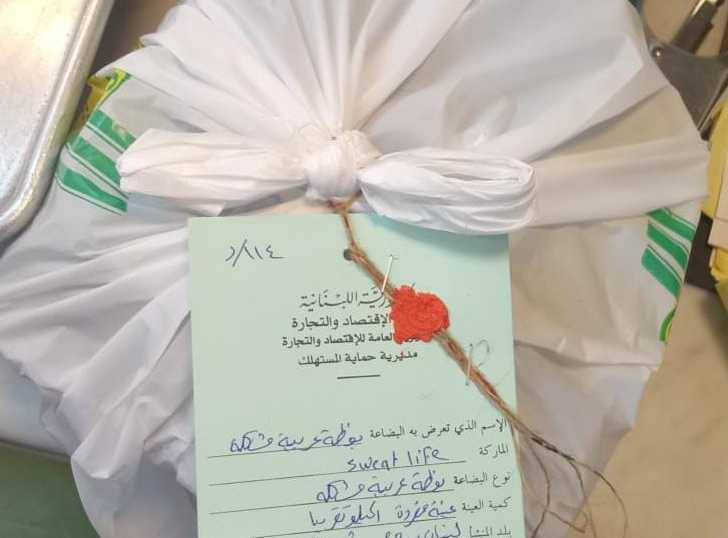 ١١٤/د
الجمهورية اللبنانية
الإقتصاد والتجارة
العامة للإقتصاد والتجارة
مديرية حماية المستهلك
الإسم الذي تعرض به البضاعة بوظة عربية مشكلة
الماركة sweet life
نوع البضاعة بوظة عربية مشكلة
كمية العينة عينة مفردة ١كيلو تقريبا
بلد المنشأ لبنان